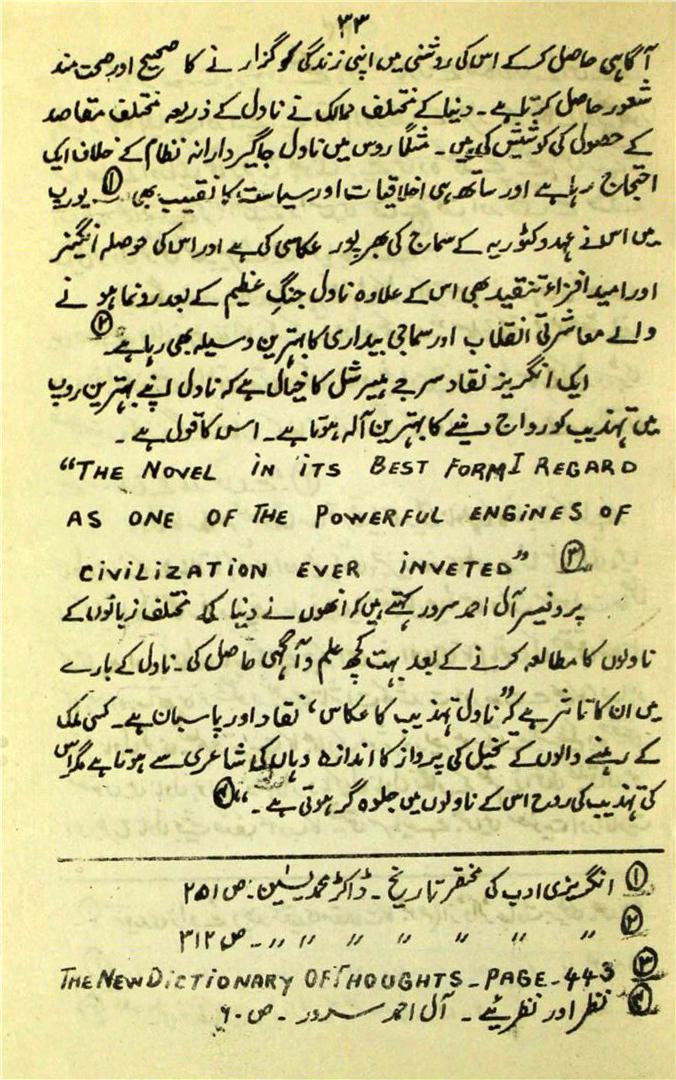 ۳۳
آگاہی حاصل کرکے اس کی روشنی میں اپنی زندگی کو گزارنے کا صحیح اور صحت مند
شعور حاصل کرتا ہے۔ دنیا کے مختلف ممالک نے ناول کے ذریعہ مختلف مقاصد
کے حصول کی کوشیش کی ہیں۔ مثلاً روس میں ناول جاگیردارانہ نظام کے خلاف ایک
احتجاج رہا ہے اور ساتھ ہی اخلاقیات اور سیاست کا نقیب بھی ①۔ یورپ
میں اس نے عہد وکٹوریہ کے سماج کی بھرپور عکاسی کی ہے اور اس کی حوصلہ انگیز
اور امید افزاء تنقید بھی اس کے علاوہ ناول جنگِ عظیم کے بعد رونما ہونے
والے معاشرتی انقلاب اور سماجی بیداری کا بہترین وسیلہ بھی رہا ہے ②
ایک انگریز نقاد سر جے ہیرشل کا خیال ہے کہ ناول اپنے بہترین روپ
میں تہذیب کو رواج دینے کا بہترین آلہ ہوتا ہے۔ اس کا قول ہے۔
"THE NOVEL IN ITS BEST FORM I REGARD
AS ONE OF THE POWERFUL ENGINES OF
CIVILIZATION EVER INVETED" ③
پروفیسر آل احمد سرور کہتے ہیں کہ انھوں نے دنیا کی مختلف زبانوں کے
ناولوں کا مطالعہ کرنے کے بعد بہت کچھ علم و آگہی حاصل کی۔ ناول کے بارے
میں ان کا تاثر ہے کہ "ناول تہذیب کا عکاس، نقاد اور پاسبان ہے۔ کسی ملک
کے رہنے والوں کے تخیل کی پرواز کا اندازہ وہاں کی شاعری سے ہوتا ہے مگر اس
کی تہذیب کی روح اس کے ناولوں میں جلوہ گر ہوتی ہے۔" ④
① انگریزی ادب کی مختصر تاریخ۔ ڈاکٹر محمد یٰسین۔ ص ۲۵۱
② 〃 〃 〃 〃 〃 〃 〃۔ ص ۳۱۲
③ THE NEW DICTIONARY OF THOUGHTS - PAGE - 443
④ نظر اور نظریئے۔ آل احمد سرور۔ ص ۶۰